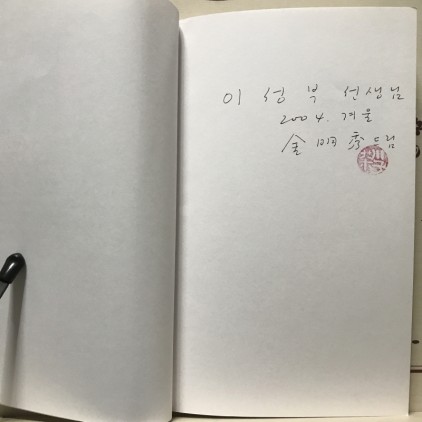 이 성 부 선생님
2004. 겨울
金 明 秀 드림